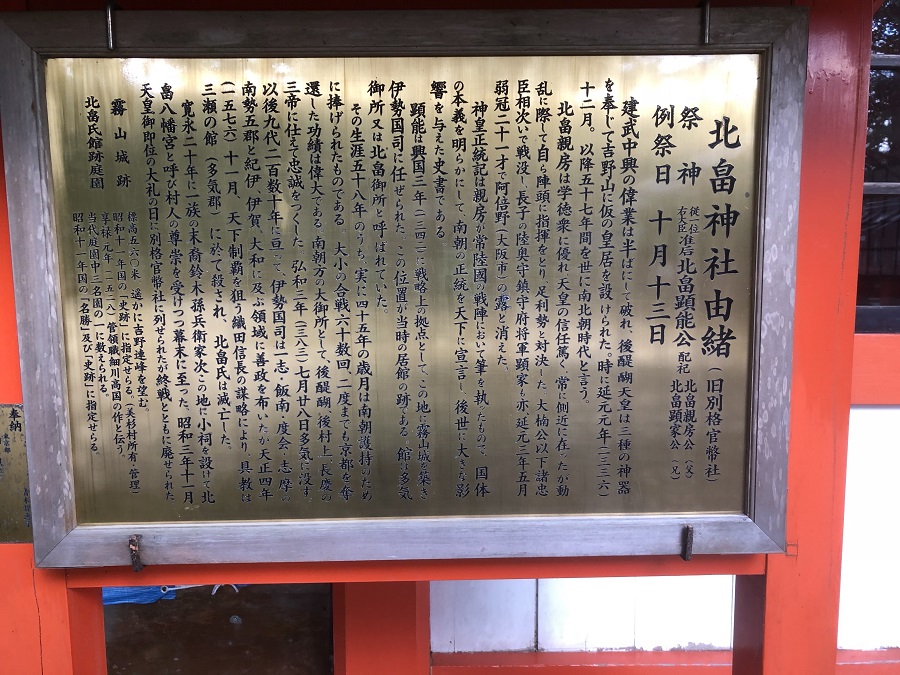 北畠神社由緒(旧別格官幣社)
祭神 従一位右大臣准后北畠顕能公 配祀 北畠親房公(父) 北畠顕家公(兄)
例祭日 十月十三日
建武中興の偉業は半ばにして破れ、後醍醐天皇は三種の神器
を奉じて吉野山に仮の皇居を設けられた。時に延元元年(一三三六)
十二月。以降五十七年間を世に南北朝時代と言う。
北畠親房は学徳衆に優れ天皇の信任篤く、常に側近に在ったが動
乱に際して自ら陣頭に指揮をとり足利勢と対決した。大楠公以下諸忠
臣相次いで戦没し、長子の陸奥守鎮守府将軍顕家も亦延元三年五月
弱冠二十一才で阿倍野(大阪市)の露と消えた。
神皇正統記は親房が常陸國の戦陣において筆を執ったもので、国体
の本義を明らかにして、南朝の正統を天下に宣言し、後世に大きな影
響を与えた史書である。
顕能は興国三年(一三四二)に戦略上の拠点として、この地に霧山城を築き
伊勢国司に任ぜられた。この位置が当時の居館の跡である。館は多気
御所又は北畠御所と呼ばれていた。
その生涯五十八年のうち、実に四十五年の歳月は南朝護持のため
に捧げられたものである。大小の合戦六十数回、二度までも京都を奪
還した功績は偉大である。南朝方の大御所として、後醍醐、後村上、長慶の
三帝に仕えて忠誠をつくした。弘和三年(一三八三)七月廿八日多気に没す。
以後九代二百数十年に亘って、伊勢国司は一志・飯南・度会・志摩の
南勢五郡と紀伊、伊賀、大和に及ぶ領域に善政を布いたが天正四年
(一五七六)十一月、天下制覇を狙う織田信長の謀略により、具教は
三瀬の館(多気郡)に於て殺され、北畠氏は滅亡した。
寛永二十年に一族の末裔鈴木孫兵衛家次この地に小祠を設けて北
畠八幡宮と呼び村人の尊崇を受けつつ幕末に至った。昭和三年十一月
天皇御即位の大礼の日に別格官幣社に列せられたが終戦とともに廃せられた
霧山城跡 標高五六〇米 遥かに吉野連峰を望む。
昭和十一年国の「史跡」に指定せらる。(美杉村所有・管理)
北畠氏館跡庭園 享禄元年(一五二八)管領職細川高国の作と伝う。
当代庭園中三名園の一に数えられる。
昭和十一年国の「名勝」及び「史跡」に指定せらる。
奉納
東京都